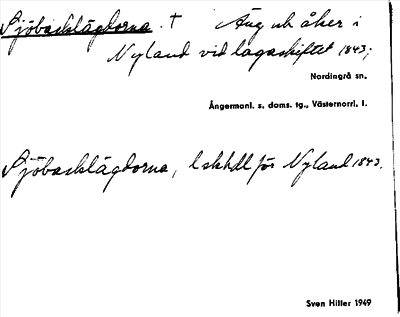 Sjöbacklägdorna. † Äng och åker i
Nyland vid lagaskiftet 1843;
Nordingrå sn.
Ångermanl. s. doms. tg., Västernorrl. l.
Sjöbacklägdorna, lskhdl för Nyland 1843.
Sven Hiller 1949